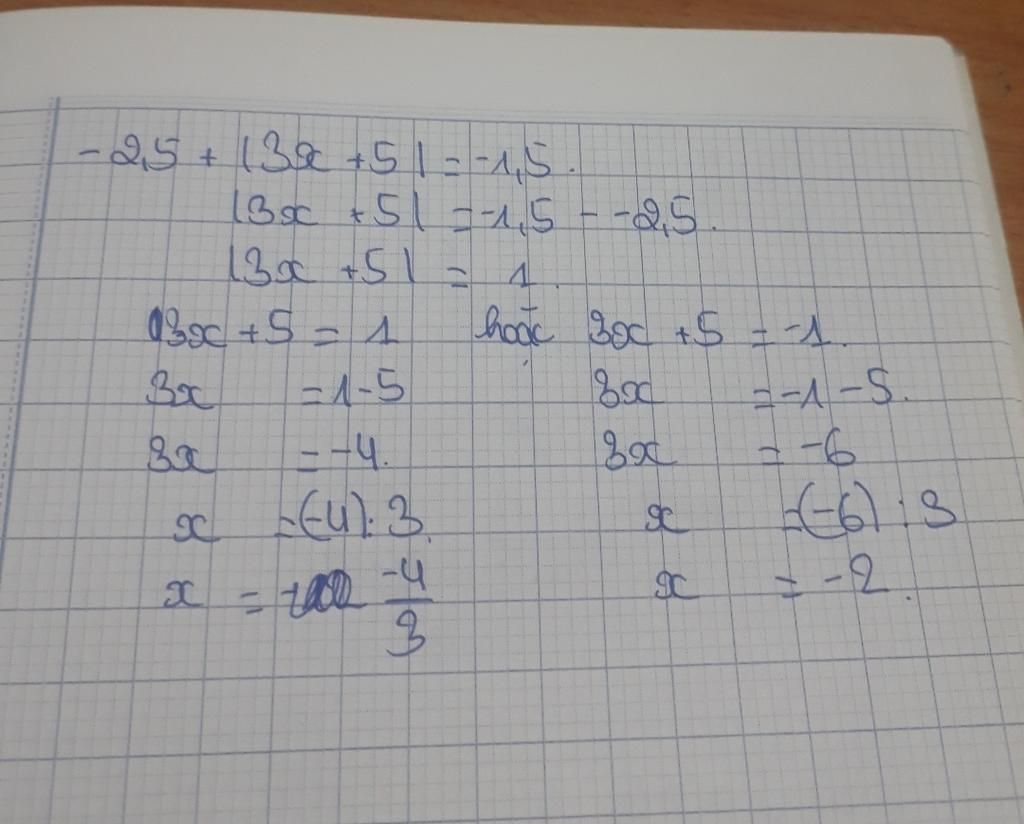 -2,5 + |3x + 5| = -1,5.
|3x + 5| = -1,5 - -2,5.
|3x + 5| = 1.
3x + 5 = 1 hoặc 3x + 5 = -1.
3x = 1 - 5 3x = -1 - 5.
3x = -4. 3x = -6
x = (-4) : 3. x = (-6) : 3
x = -4/3 x = -2.